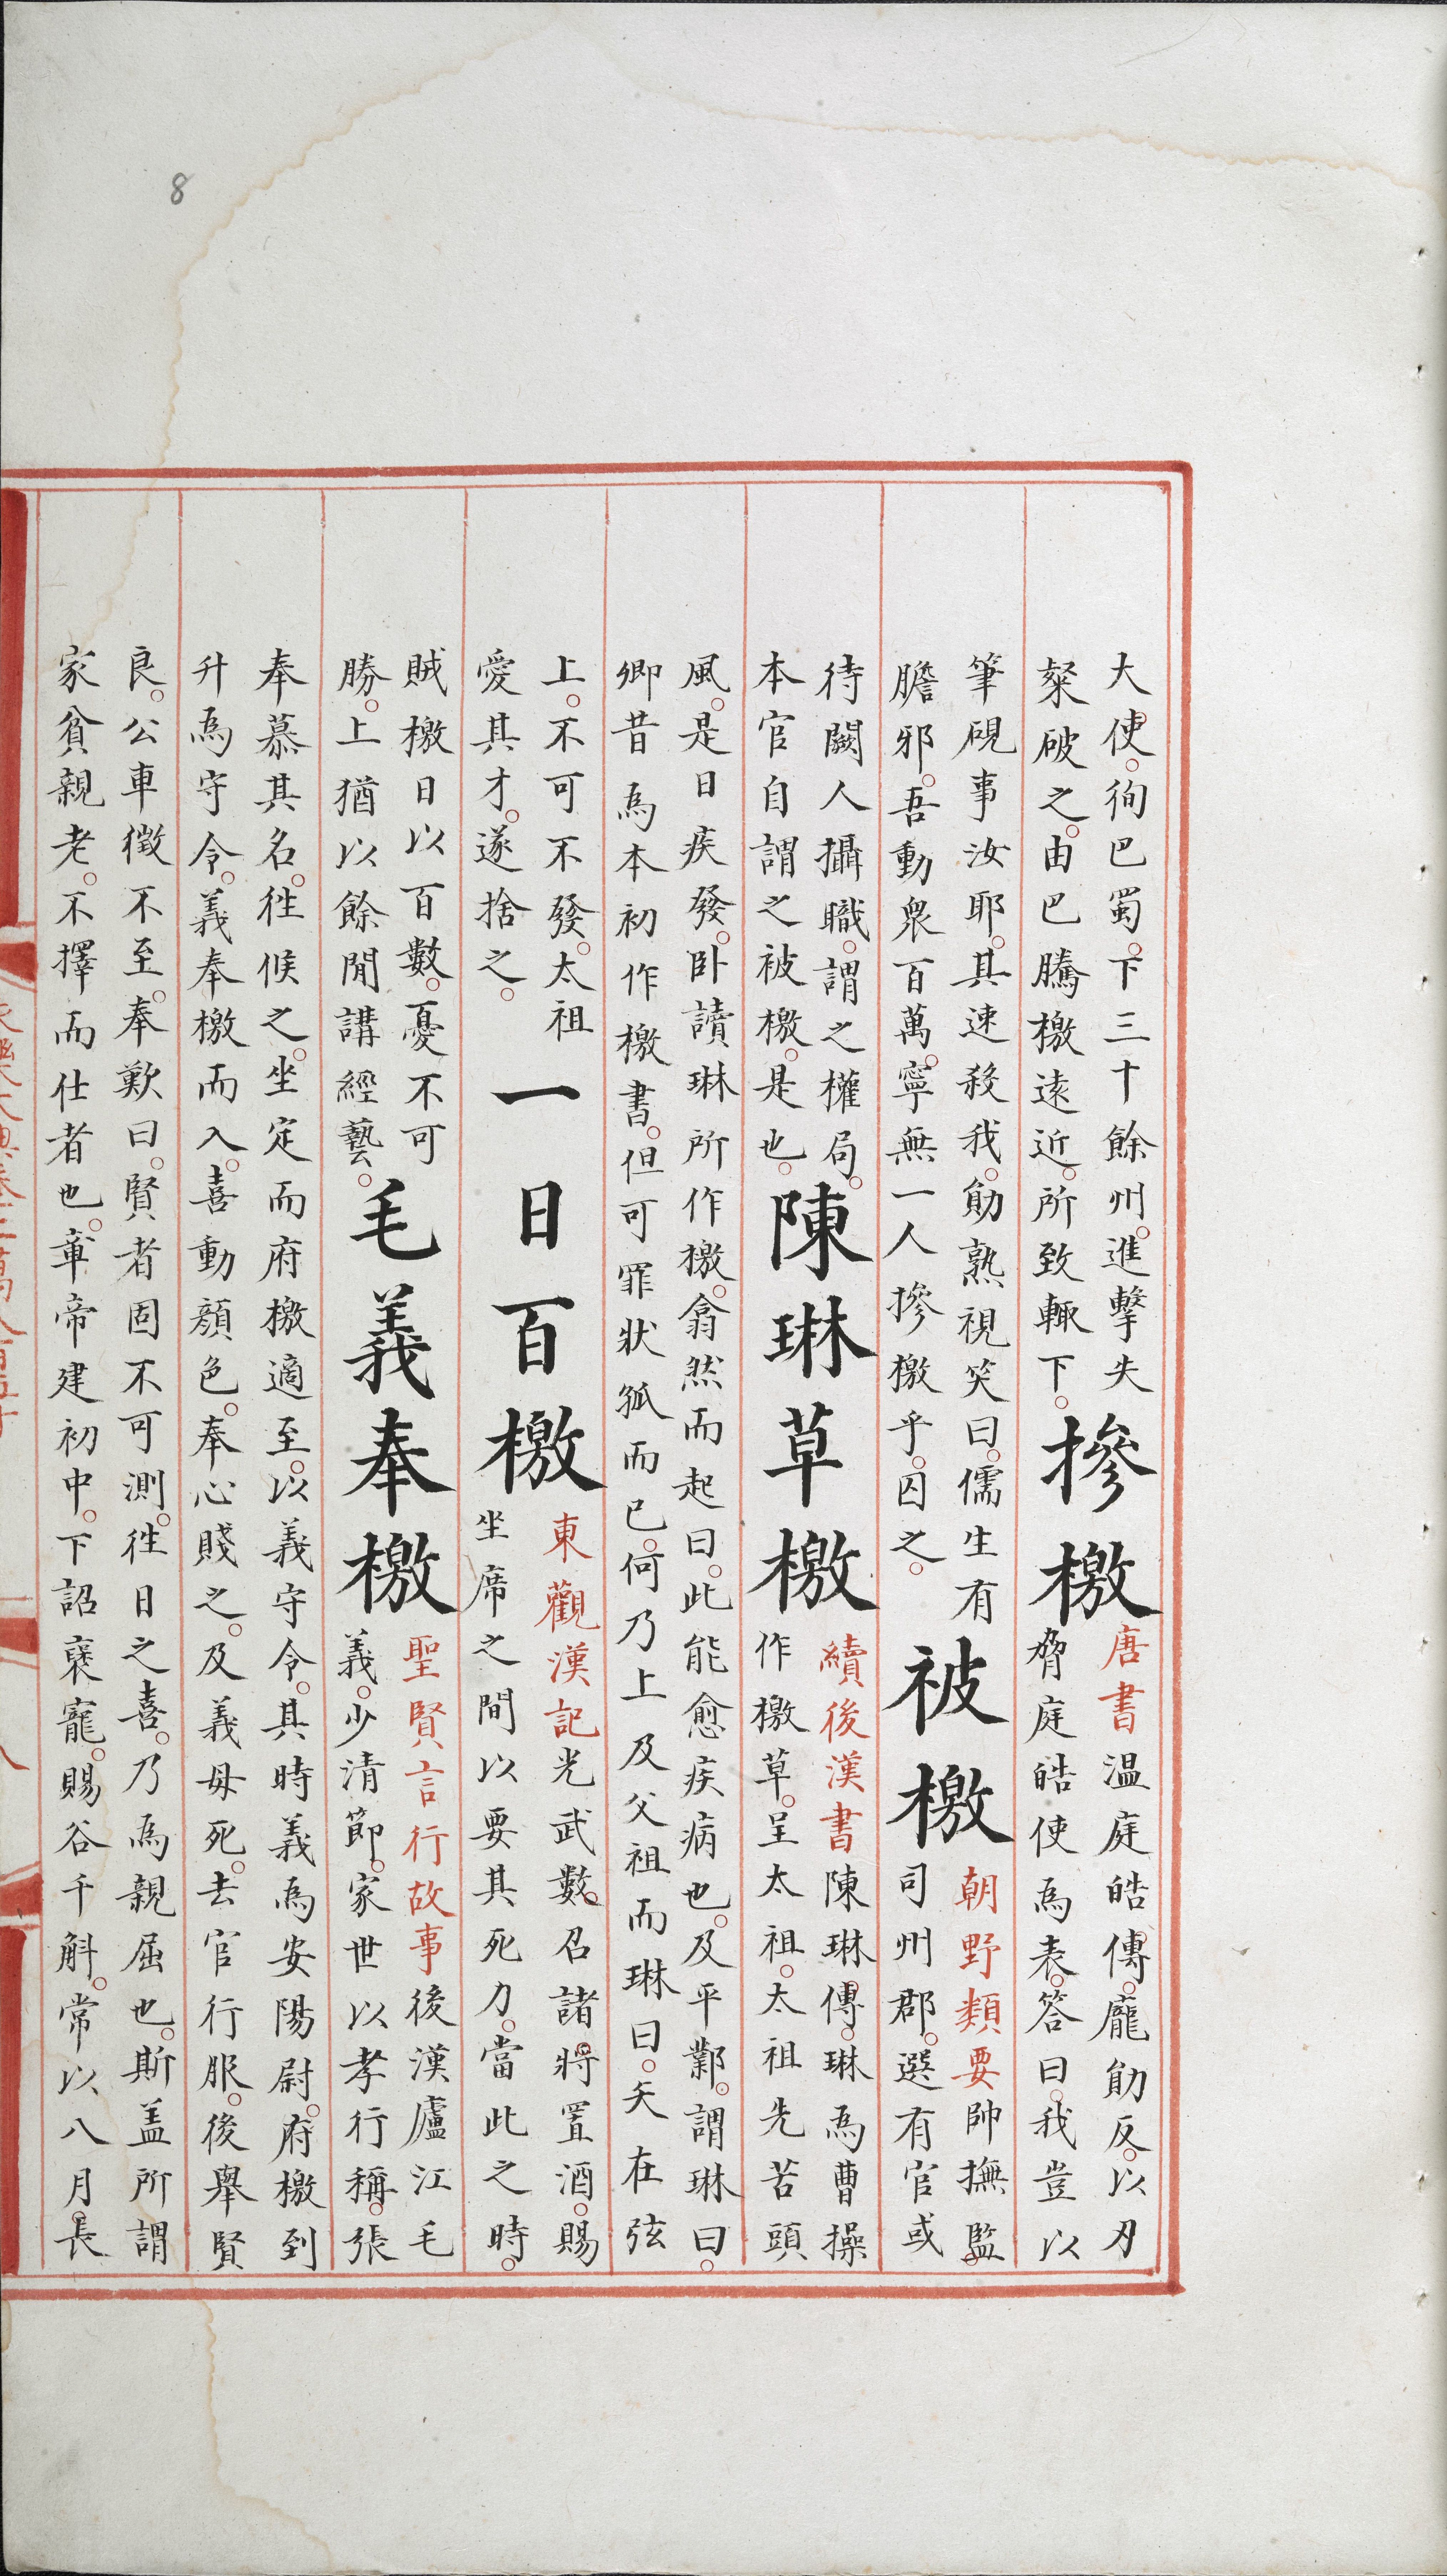 大使。徇巴蜀。下三十餘州。進擊失
粲破之。由巴騰檄遠近。所致輒下。
摻檄
唐書溫庭皓傳。龐勛反。以刃
脅庭皓使為表。答曰。我豈以
筆硯事汝耶。其速殺我。勛熟視笑曰。儒生有
膽邪。吾動衆百萬。寧無一人摻檄乎。囚之。
被檄
朝野類要帥撫監。
司州郡。選有官或
待闕人攝職。謂之權局。
本官自謂之被檄。是也。
陳琳草檄
續後漢書陳琳傳。琳為曹操
作檄草。呈太祖。太祖先苦頭
風。是日疾發。卧讀琳所作檄。翕然而起曰。此能愈疾病也。及平鄴。謂琳曰。
卿昔為本初作檄書。但可罪狀孤而已。何乃上及父祖而琳曰。矢在弦
上。不可不發。太祖
愛其才。遂捨之。
一日百檄
東觀漢記光武數。召諸將。置酒。賜
坐席之間以要其死力。當此之時。
賊檄日以百數。憂不可
勝。上猶以餘閒講經藝。
毛義奉檄
聖賢言行故事後漢廬江毛
義。少清節。家世以孝行稱。張
奉慕其名。徃候之。坐定而府檄適至。以義守令。其時義為安陽尉。府檄到
升為守令。義奉檄而入。喜動顏色。奉心賤之。及義母死。去官行服。後舉賢
良。公車徵不至。奉歎曰。賢者固不可測。徃日之喜。乃為親屈也。斯盖所謂
家貧親老。不擇而仕者也。章帝建初中。下詔褒寵。賜谷千斛。常以八月。長
8